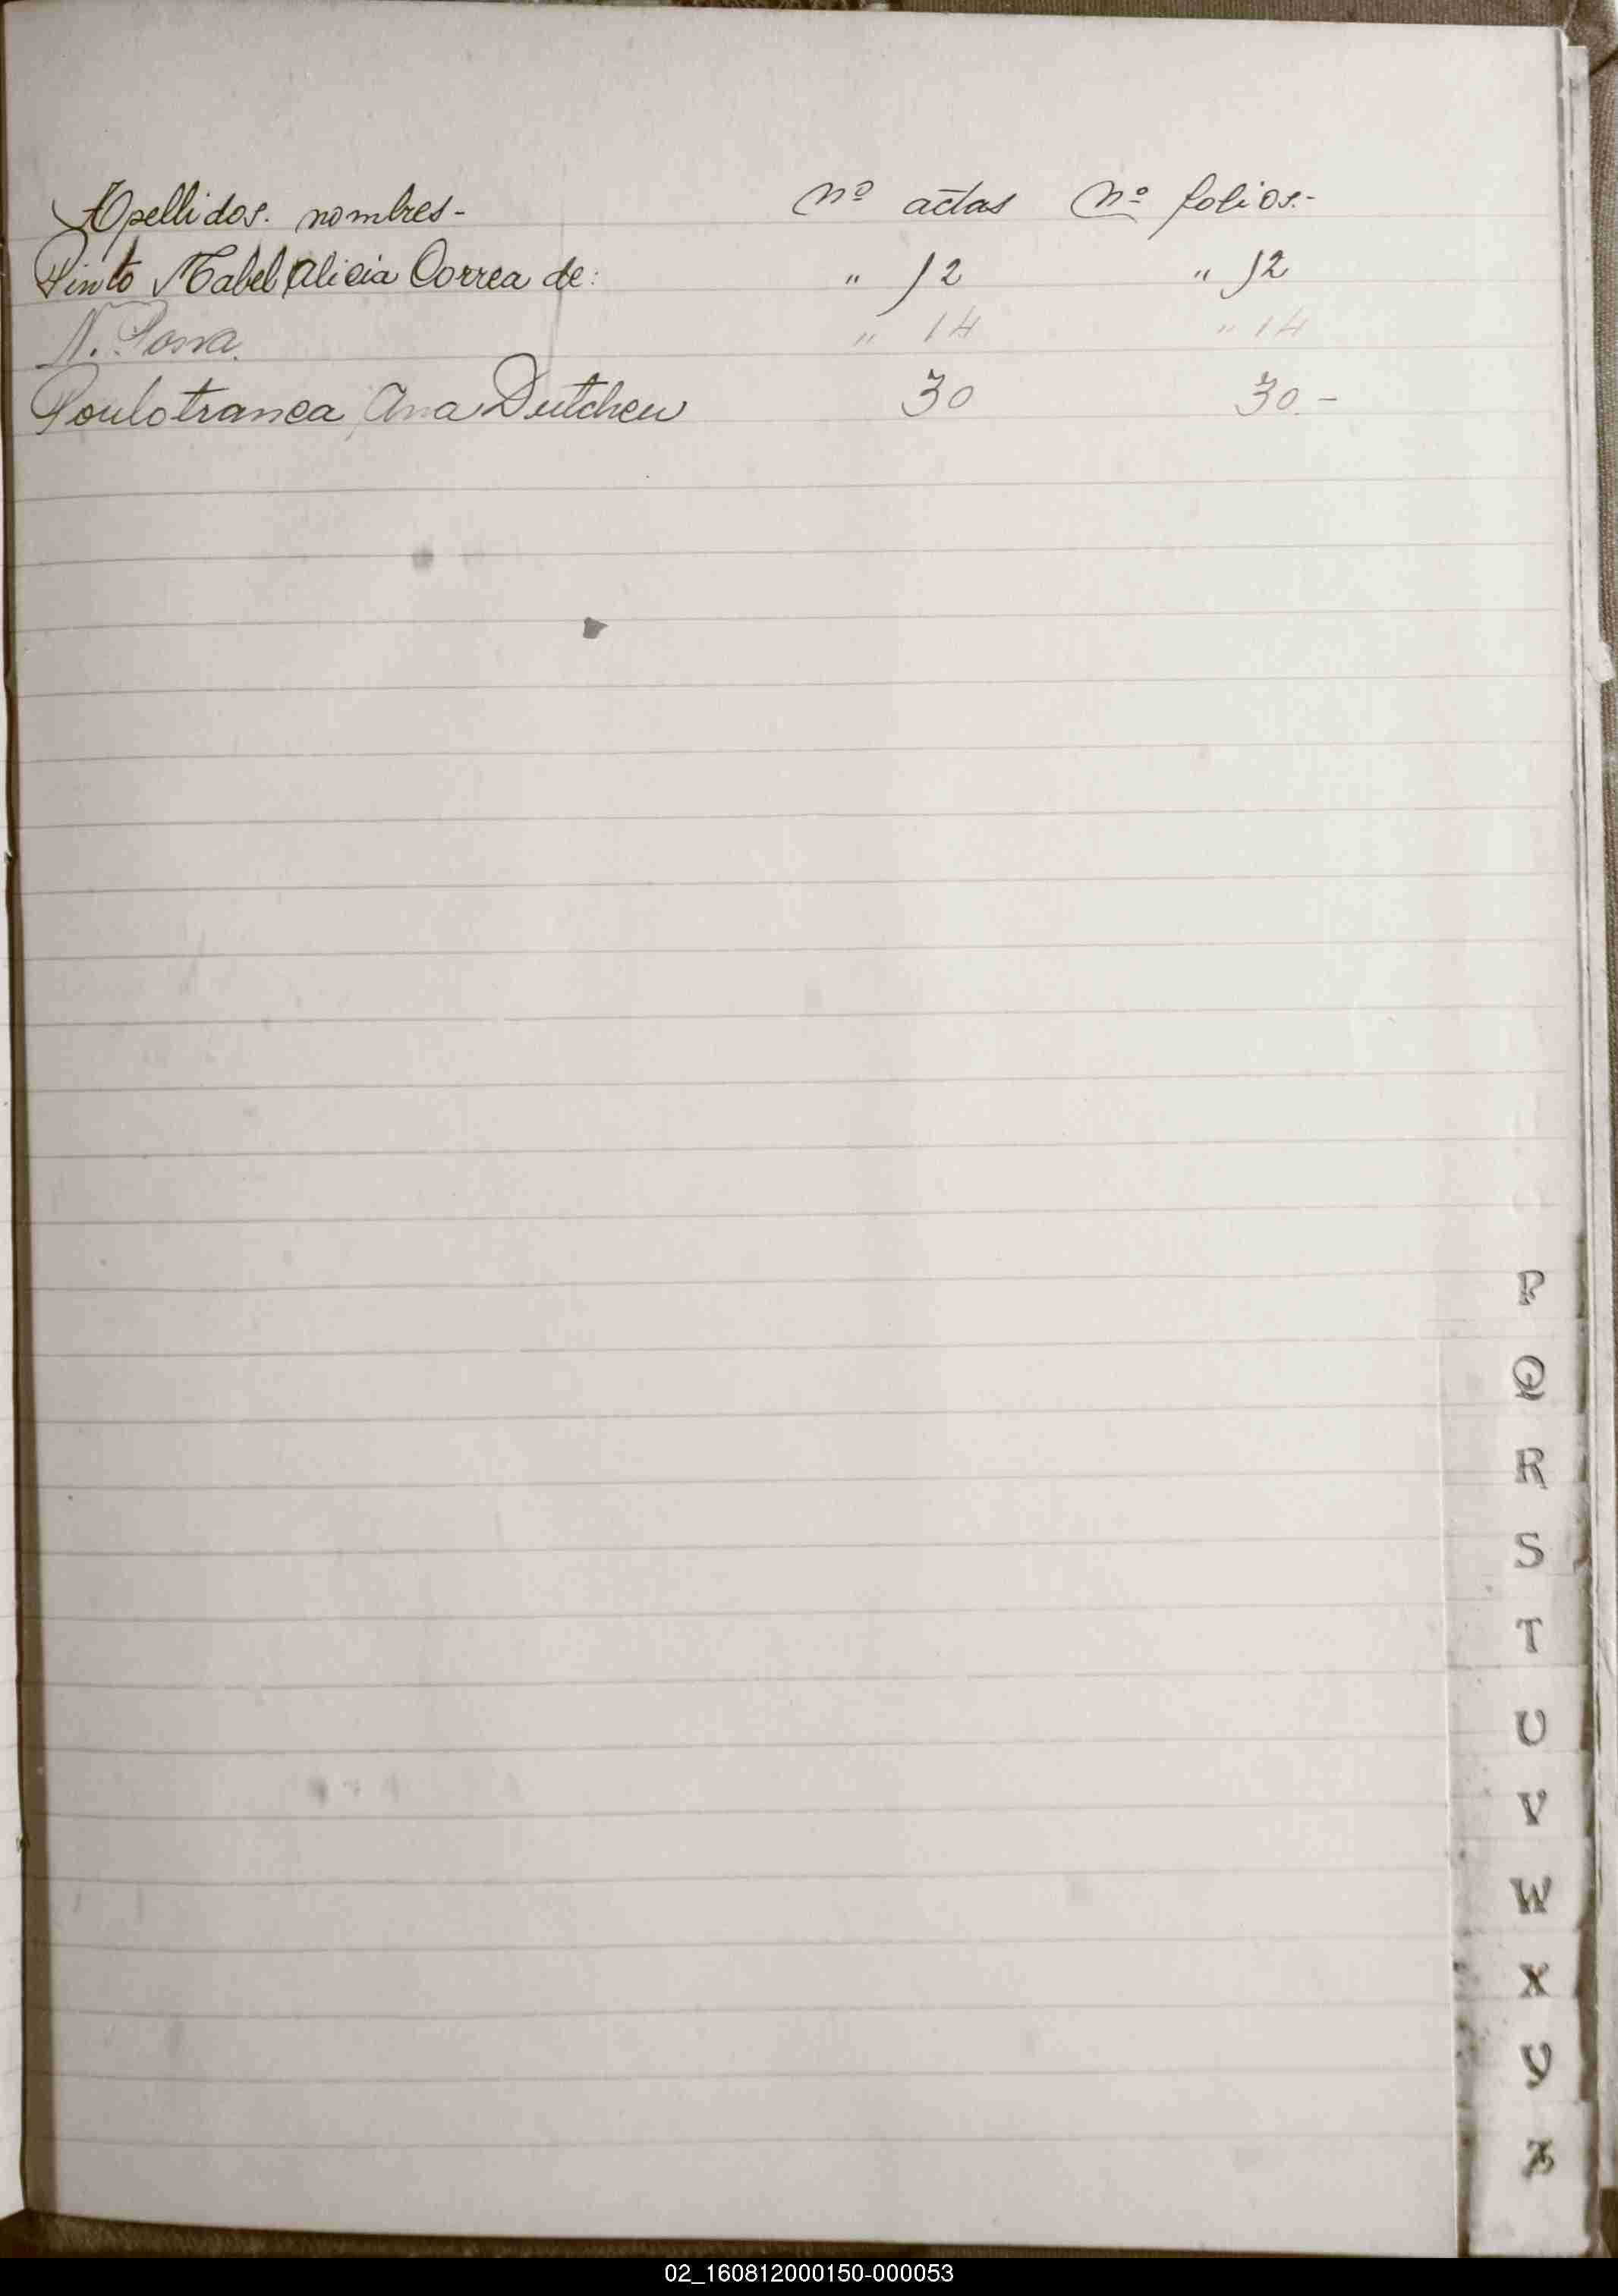 Apellidos. nombres- nº actas nº folios.-
Pinto Mabel Alicia Correa de: " 12 " 12
N. Possa. " 14 " 14
Poulotranca Ana Dutcheu 30 30.-
P
Q
R
S
T
U
V
W
X
Y
Z
02_160812000150-000053